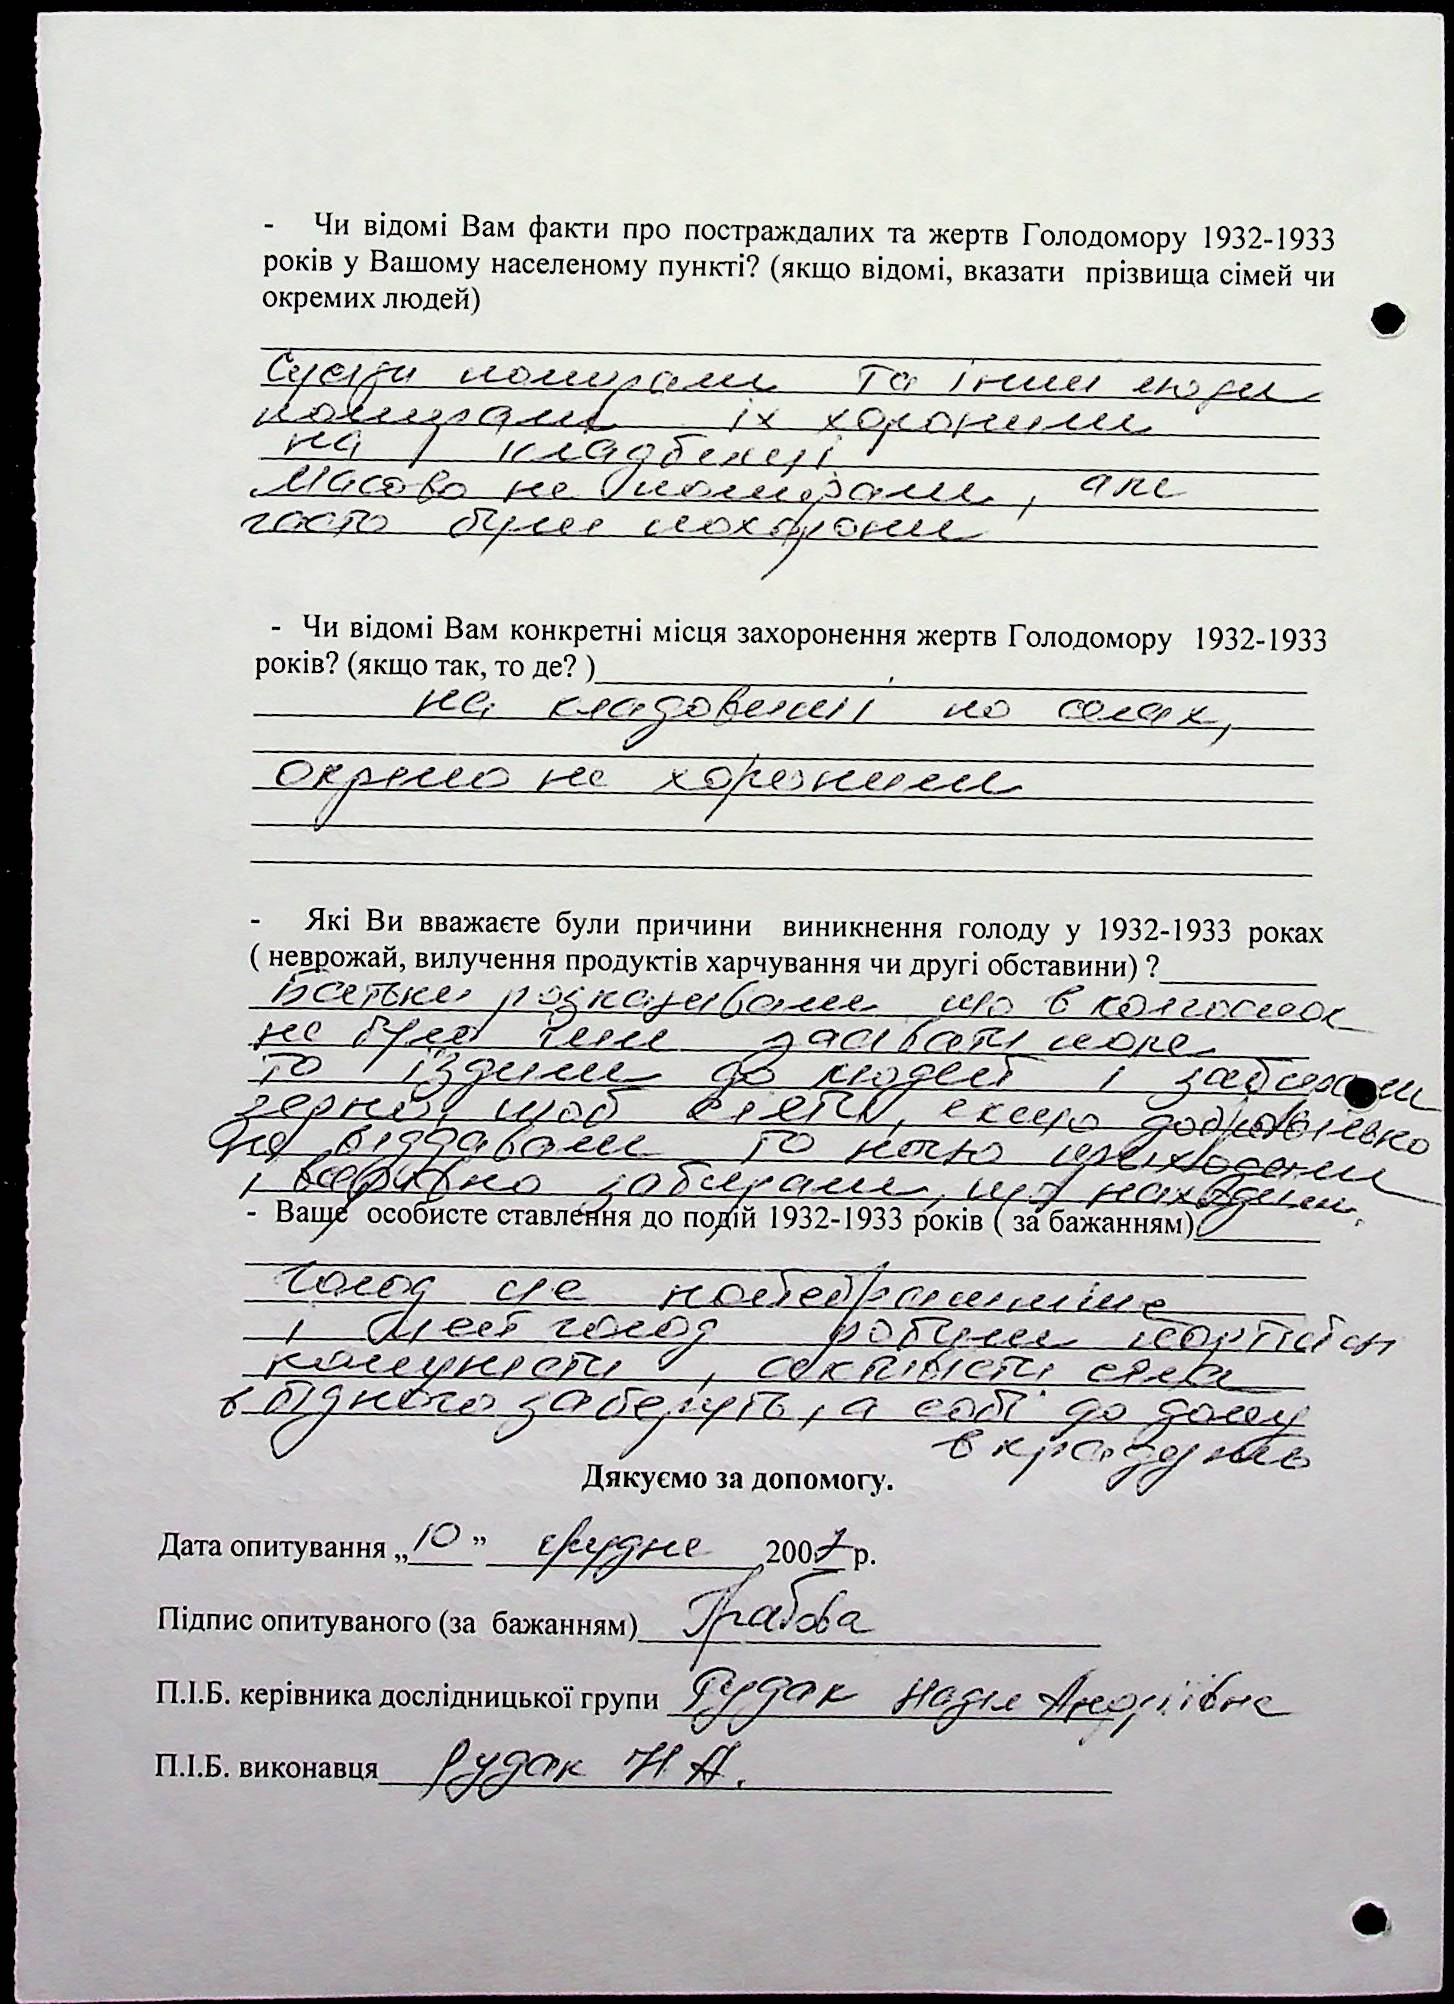 - Чи відомі Вам факти про постраждалих та жертв Голодомору 1932-1933
років у Вашому населеному пункті? (якщо відомі, вказати прізвища сімей чи
окремих людей)
Сусіди помирали та інші люди
помирали їх хоронили
на кладбищі
Масово не помирали, але
часто були похорони
- Чи відомі Вам конкретні місця захоронення жертв Голодомору 1932-1933
років? (якщо так, то де? )
на кладовищі по селах,
окремо не хоронили
- Які Ви вважаєте були причини виникнення голоду у 1932-1933 роках
( неврожай, вилучення продуктів харчування чи другі обставини) ?
Батьки розказували що в колгоспах
не було чим засівати поле
то їздили до людей і забирали
зерно, щоб сіяти, якщо добровільно
не віддавали то ночю приходили
і всеравно забирали, що находили.
- Ваще особисте ставлення до подій 1932-1933 років ( за бажанням)
Голод це найстрашніше
і цей голод робили
комуністи, активісти села
в бідного заберуть, а собі до дому
вкрадуть
Дякуємо за допомогу.
Дата опитування „10” грудня 2007 р.
Підпис опитуваного (за бажанням) Грабова
П.І.Б. керівника дослідницької групи Рудак Надія Андріївна
П.І.Б. виконавця Рудак Н.А.